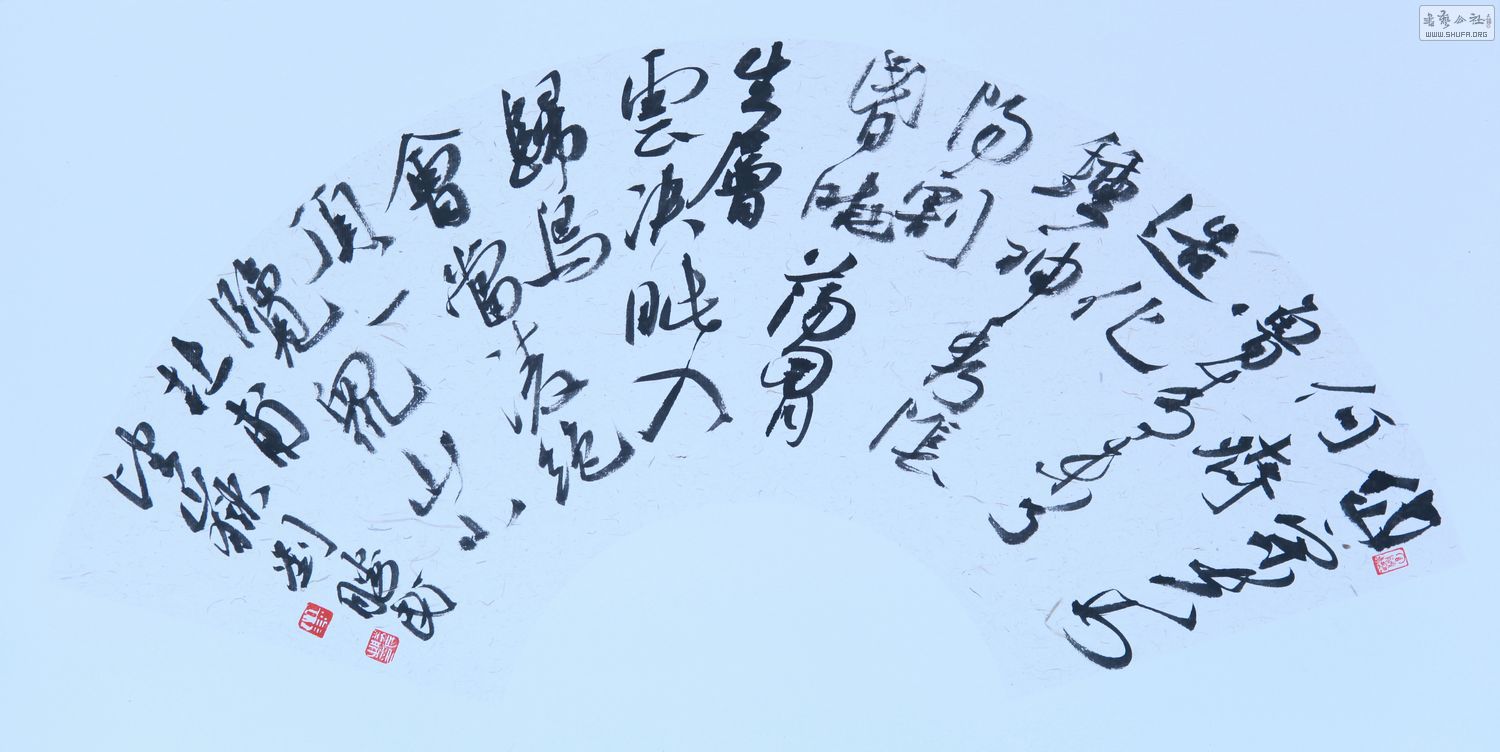 岱宗夫如
何齊
魯青未了
造化
鍾神秀陰
陽割
昏曉蕩胸
生層
雲決眥入
歸鳥
會當凌絕
頂一
覽眾山小
杜甫
望嶽劉
書藝公社
WWW.SHUFA.ORG